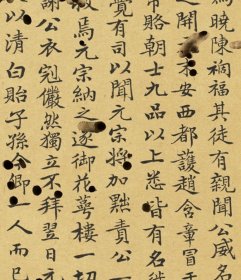 為曉陳禍福其徒有親聞公威名
之開末安西都護趙含章冒于
帛賂朝士九品以上悉皆有名
覺有司以聞元宗將加黜責公
焉元宗納之遂御花萼樓一切
謝公衣冠儼然獨立不拜翌日元
以清白貽子孫今卿一人而已